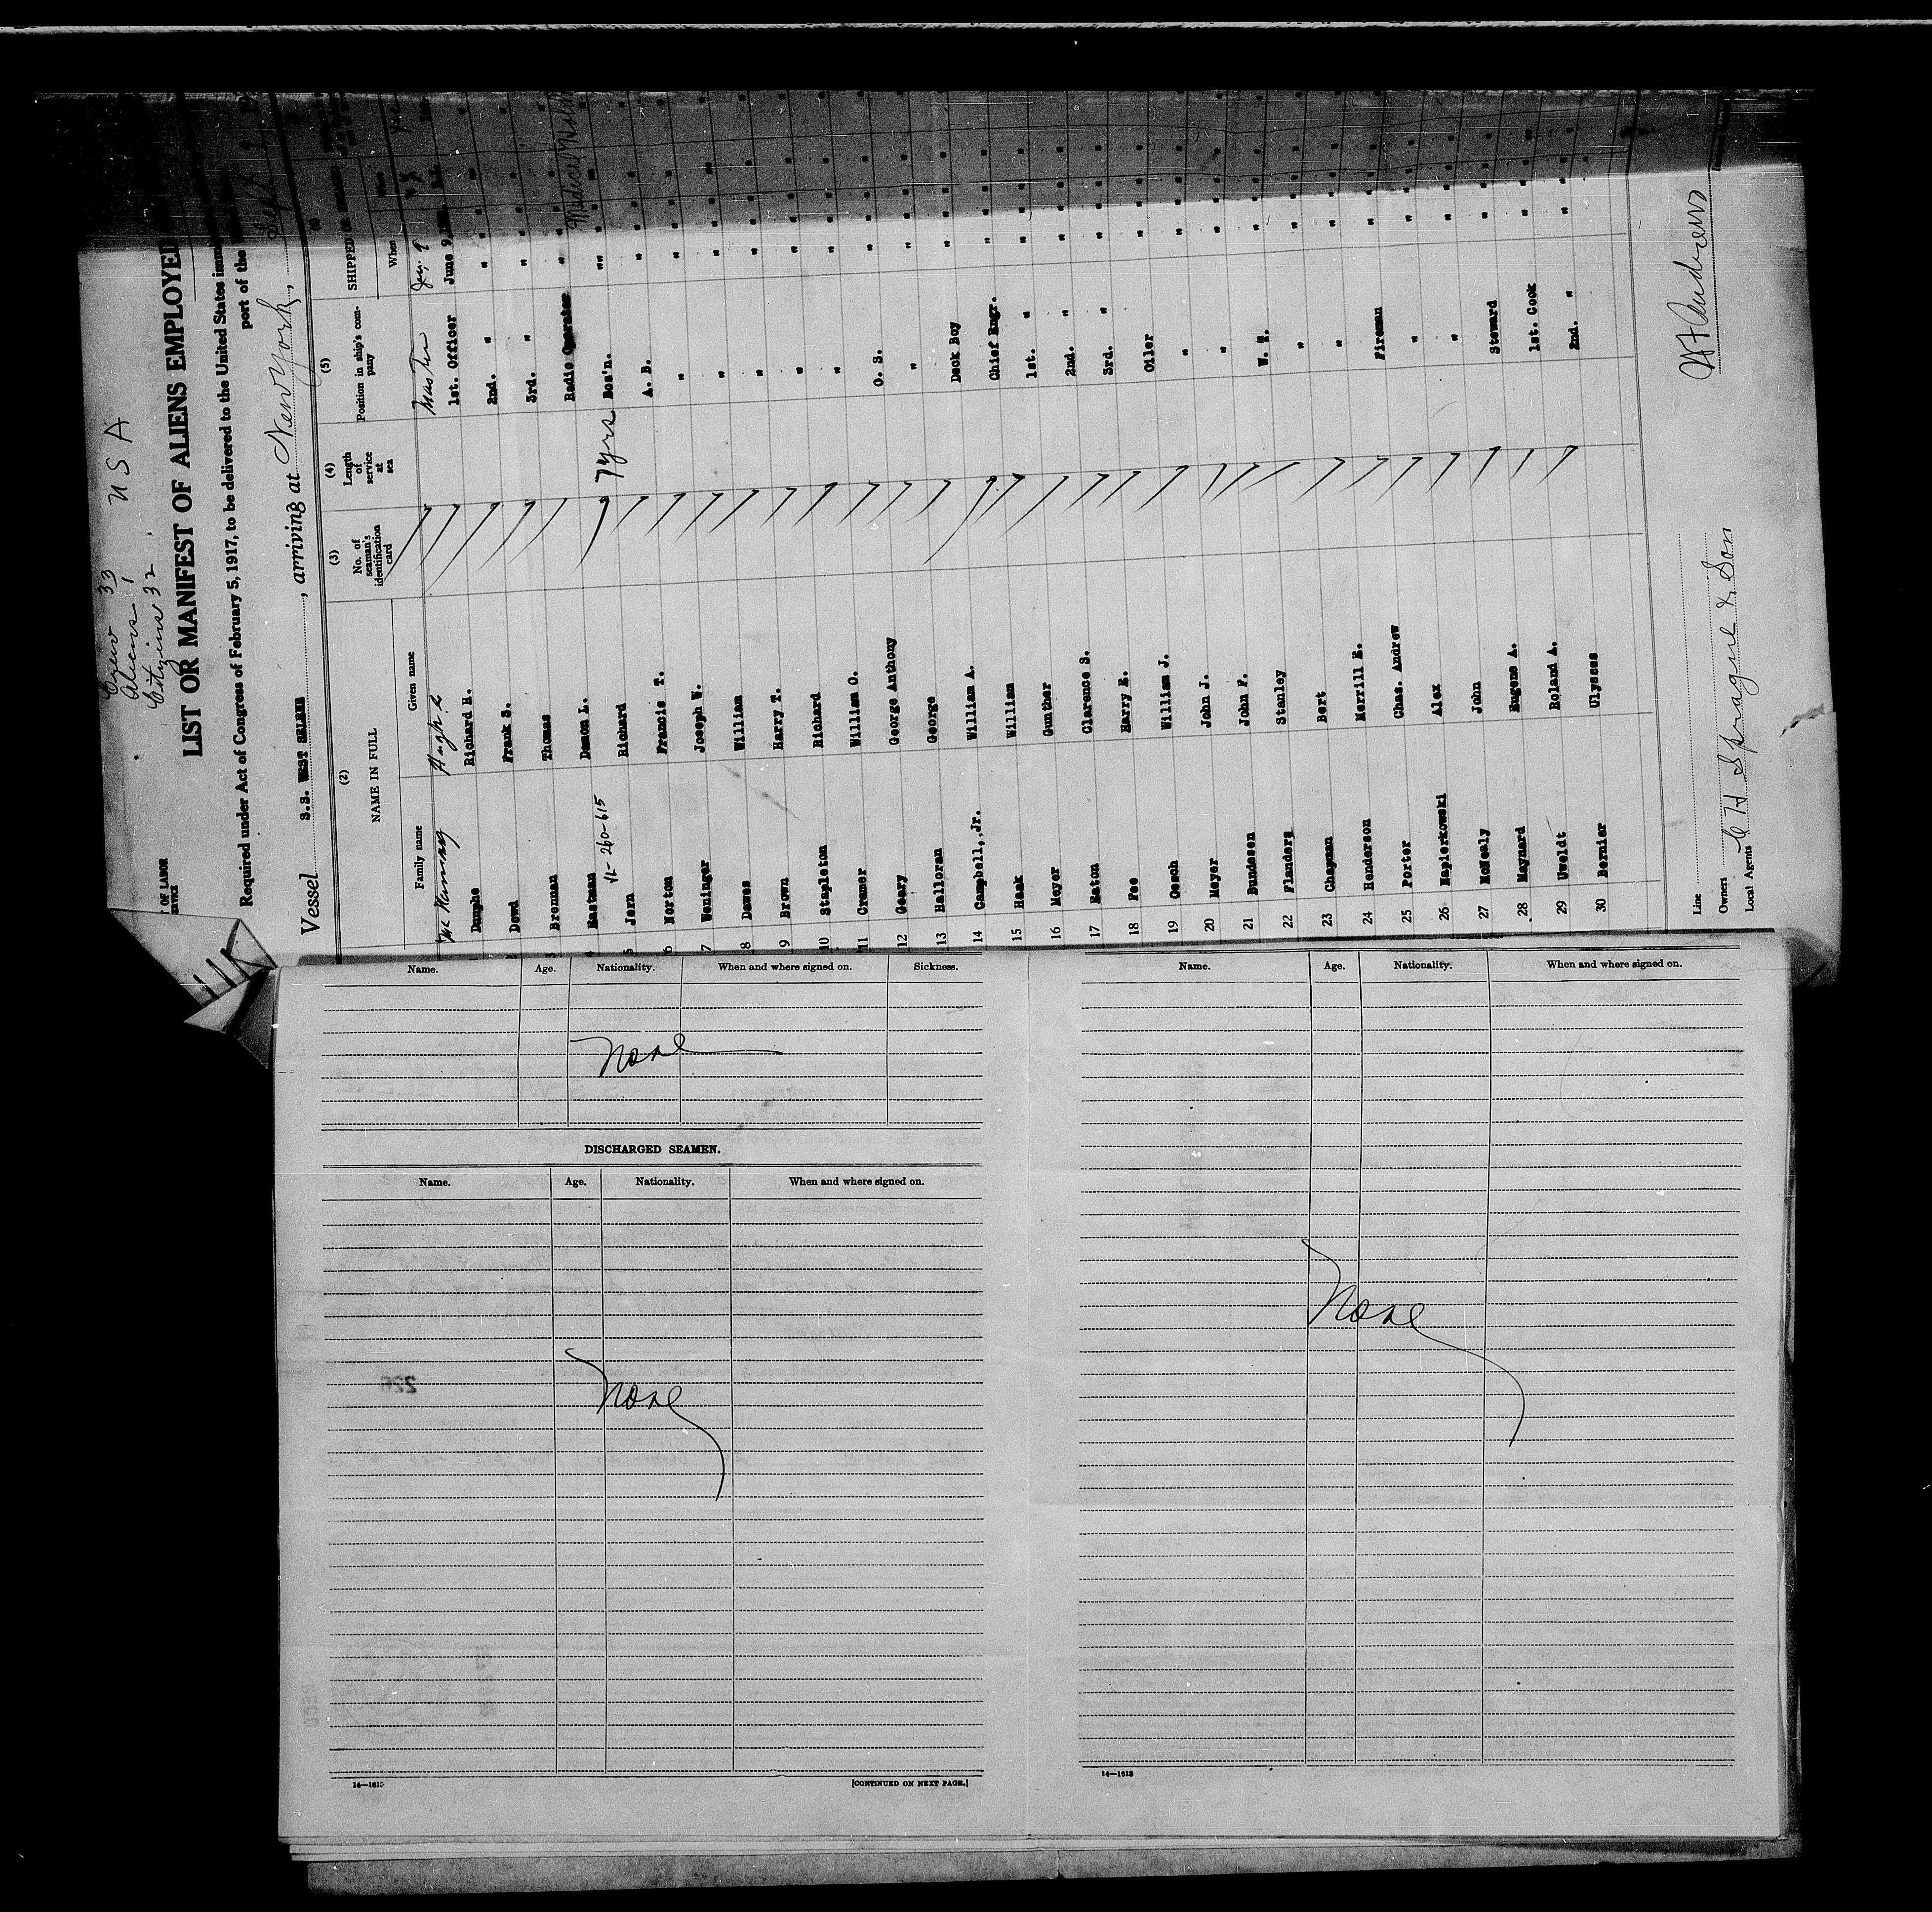 Crew 33 U S A
Aliens 1
Citizens 32
T OF LABOR
ERVICE
LIST OR MANIFEST OF ALIENS EMPLOYED
Required under Act of Congress of February 5, 1917, to be delivered to the United States
port of the
Vessel S.S. WEST SELENE, arriving at New York,
(2) (3) (4) (5)
NAME IN FULL No. of seaman's identification card Length of service at sea Position in ship's company SHIPPED
Family name Given name When
Hugh Master
Dunphe Richard H. 1st. Officer June 9
Dowd Frank S. 2nd. "
3 Brennan Thomas 3rd. "
4 Eastman Demon L. Radio Operator "
VL-260-615
5 Jern Richard 7 yrs Bos'n. "
6 Norton Francis T. A. B. "
7 Weninger Joseph W. " "
8 Dawes William " "
9 Brown Harry T. " "
10 Stapleton Richard " "
11 Cremer William O. " "
12 Geary George Anthony O. S. "
13 Halloran George " "
14 Campbell, Jr. William A. Deck Boy "
15 Haak William Chief Engr. "
16 Meyer Gunther 1st. " "
17 Eaton Clarence S. 2nd. " "
18 Fee Harry E. 3rd. " "
19 Oesch William J. Oiler "
20 Meyer John J. " "
21 Bundesen John F. " "
22 Flanders Stanley W. T. "
23 Chapman Bert " "
24 Henderson Merrill E. " "
25 Porter Chas. Andrew Fireman "
26 Napierkowski Alex " "
27 McNealy John " "
28 Maynard Eugene A. Steward "
29 Uweldt Roland A. 1st. Cook "
30 Bernier Ulysses 2nd. " "
Line
Owners
Local Agents C H Sprague & Son
Andrews
Name. Age. Nationality. When and where signed on. Sickness.
None
DISCHARGED SEAMEN.
Name. Age. Nationality. When and where signed on.
226
None
[CONTINUED ON NEXT PAGE.]
Name. Age. Nationality. When and where signed on.
None
14—1613